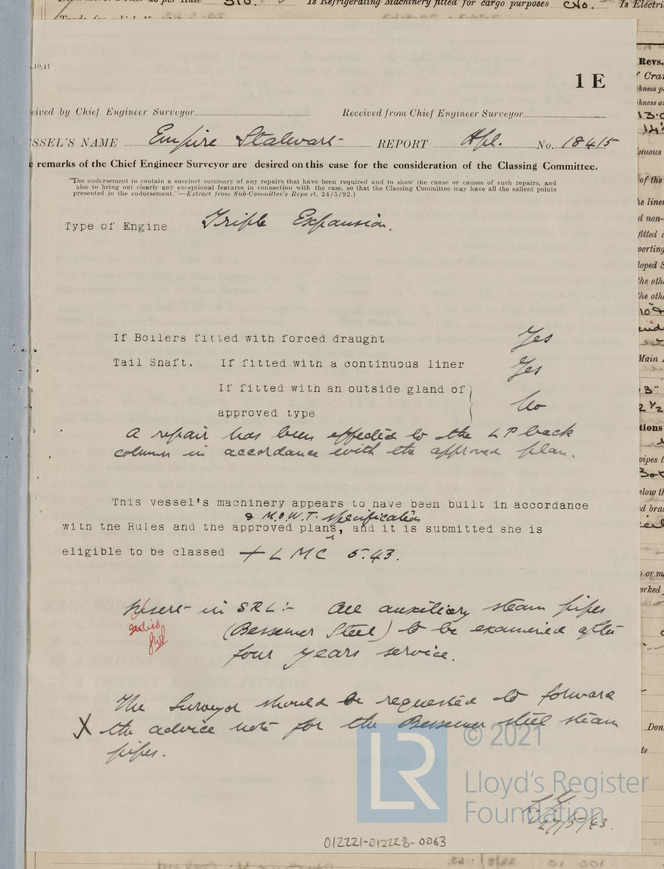 Is Refrigerating Machinery fitted for cargo purposes No. Is Electri
.10.11
1 E
eived by Chief Engineer Surveyor
Received from Chief Engineer Surveyor
SSEL'S NAME Empire Stalwart REPORT Hpl. No. 18415
e remarks of the Chief Engineer Surveyor are desired on this case for the consideration of the Classing Committee.
"The endorsement to contain a succinct summary of any repairs that have been required and to show the cause or causes of such repairs, and
also to bring out clearly any exceptional features in connection with the case, so that the Classing Committee may have all the salient points
presented in the endorsement."—Extract from Sub-Committee's Report, 24/5/92.)
Type of Engine Triple Expansion.
If Boilers fitted with forced draught Yes
Tail Shaft. If fitted with a continuous liner Yes
If fitted with an outside gland of
approved type No
A repair has been effected to the LP back
column in accordance with the approved plan.
This vessel's machinery appears to have been built in accordance
& M.O.W.T. specification
with the Rules and the approved plans, and it is submitted she is
eligible to be classed + LMC 5.43.
Insert in SRL:- All auxiliary steam pipes
(Bessemer Steel) to be examined after
four years service.
The Surveyor should be requested to forward
X the advice note for the Bessemer steel steam
pipes.
27/5/43.
LR
© 2021
Lloyd's Register
Foundation
012221-012228-0063